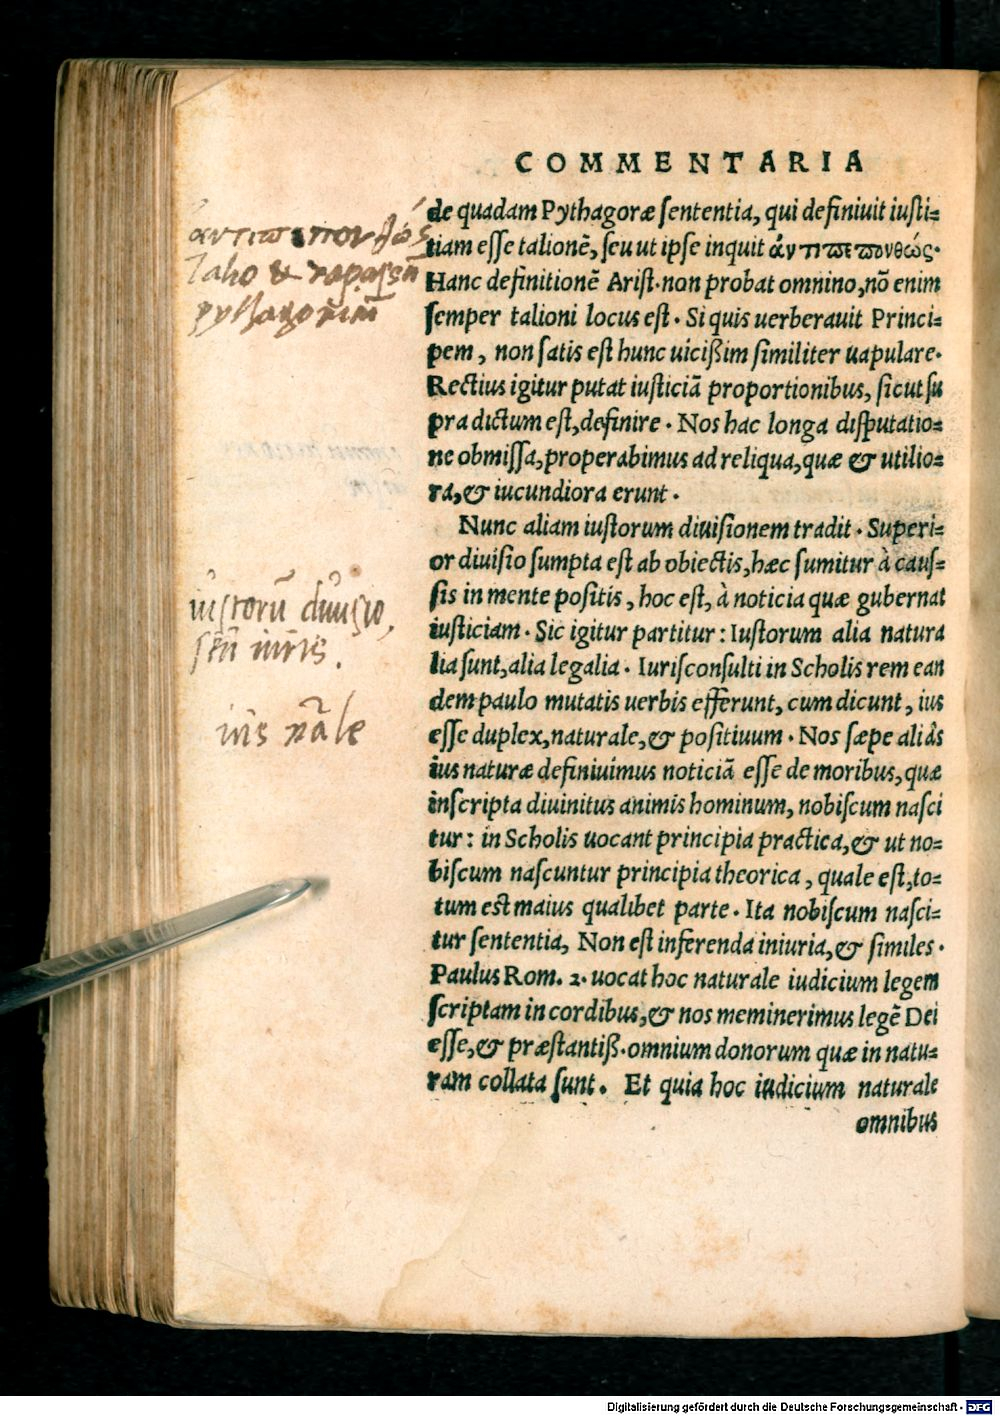 COMMENTARIA
de quadam Pythagoræ ſententia, qui definiuit iuſti-
tiam eſſe talionē, ſeu ut ipſe inquit ἀντιπεπονθώς.
Hanc definitionē Ariſt. non probat omnino, nō enim
ſemper talioni locus eſt. Si quis uerberauit Princi-
pem, non ſatis eſt hunc uiciſsim ſimiliter uapulare.
Rectius igitur putat iuſticiā proportionibus, ſicut ſu
pra dictum eſt, definire. Nos hac longa diſputatio-
ne obmiſſa, properabimus ad reliqua, quæ & utilio-
ra, & iucundiora erunt.
Nunc aliam iuſtorum diuiſionem tradit. Superi-
or diuiſio ſumpta eſt ab obiectis, hæc ſumitur à cauſ-
ſis in mente poſitis, hoc eſt, à noticia quæ gubernat
iuſticiam. Sic igitur partitur: Iuſtorum alia natura
lia ſunt, alia legalia. Iuriſconſulti in Scholis rem ean
dem paulo mutatis uerbis efferunt, cum dicunt, ius
eſſe duplex, naturale, & poſitiuum. Nos ſæpe aliâs
ius naturæ definiuimus noticiā eſſe de moribus, quæ
inſcripta diuinitus animis hominum, nobiſcum naſci
tur: in Scholis uocant principia practica, & ut no-
biſcum naſcuntur principia theorica, quale eſt, to-
tum est maius qualibet parte. Ita nobiſcum naſci-
tur ſententia, Non eſt inferenda iniuria, & ſimiles.
Paulus Rom. 2. uocat hoc naturale iudicium legem
ſcriptam in cordibus, & nos meminerimus legē Dei
eſſe, & præſtantiſs. omnium donorum quæ in natu-
ram collata ſunt. Et quia hoc iudicium naturale
omnibus
ἀντιπεπονθώς
Talio &
iuſtorū diuisio,
iuris.
ius nāle
Digitalisierung gefördert durch die Deutsche Forschungsgemeinschaft - DFG